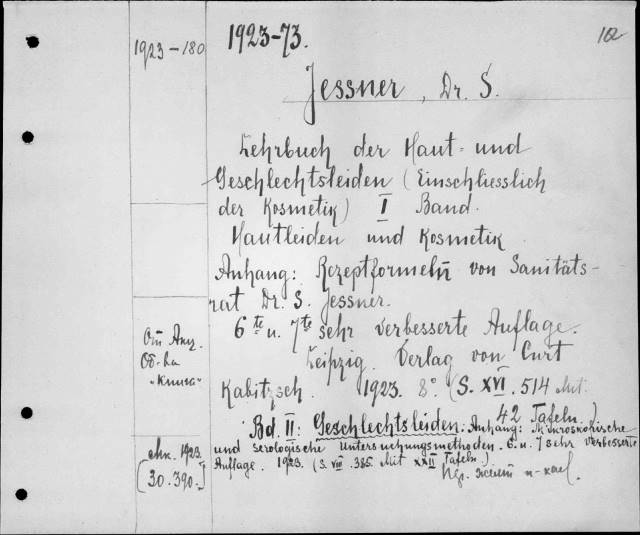 1923-180
1923-73.
102
Jessner, Dr. S.
Lehrbuch der Haut- und
Geschlechtsleiden (Einschliesslich
der Kosmetik) I Band.
Hautleiden und Kosmetik
Anhang: Rezeptformeln von Sanitäts-
rat Dr. S. Jessner.
6te u. 7te sehr verbesserte Auflage.
Leipzig. Verlag von Curt
Kabitzsch. 1923. 8° (S. XVI. 514 Mit
42 Tafeln.)
Bd. II: Geschlechtsleiden. Anhang: Mikroskopische
und serologische Untersuchungsmethoden. 6. u. 7 sehr verbesserte
Auflage. 1923. (S. VIII. 385. Mit XXII Tafeln.)
От Акц.
Об-ва
"Книга"
1923.
(30.390.)